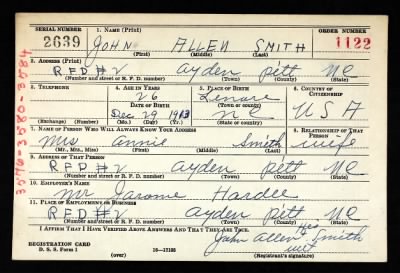 SERIAL NUMBER 1. NAME (Print) ORDER NUMBER
2639 JOHN ALLEN SMITH 1122
(First) (Middle) (Last)
2. ADDRESS (Print)
RFD #2 Ayden Pitt NC
(Number and street or R. F. D. number) (Town) (County) (State)
3. TELEPHONE 4. AGE IN YEARS 5. PLACE OF BIRTH 6. COUNTRY OF CITIZENSHIP
26 Lenore
DATE OF BIRTH (Town or county)
Dec 29 1913 NC USA
(Exchange) (Number) (Mo.) (Day) (Yr.) (State or country)
7. NAME OF PERSON WHO WILL ALWAYS KNOW YOUR ADDRESS 8. RELATIONSHIP OF THAT PERSON
Mrs Annie Smith wife
(Mr., Mrs., Miss) (First) (Middle) (Last)
9. ADDRESS OF THAT PERSON
RFD #2 Ayden Pitt NC
(Number and street or R. F. D. number) (Town) (County) (State)
10. EMPLOYER'S NAME
Mr Jarome Hardee
11. PLACE OF EMPLOYMENT OR BUSINESS
RFD #2 Ayden Pitt NC
(Number and street or R. F. D. number) (Town) (County) (State)
I AFFIRM THAT I HAVE VERIFIED ABOVE ANSWERS AND THAT THEY ARE TRUE.
His
John Allen Smith
REGISTRATION CARD
D. S. S. Form 1 16—17105
(over) (Registrant's signature)